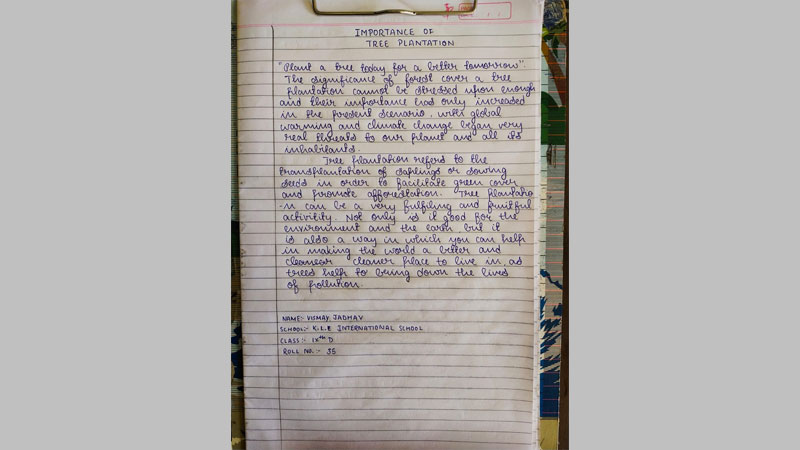 IMPORTANCE OF
TREE PLANTATION
"Plant a tree today for a better tomorrow".
The significance of forest cover a tree
plantation cannot be stressed upon enough
and their importance has only increased
in the present scenario, with global
warming and climate change began very
real threats to our planet and all its
inhabitants.
Tree plantation refers to the
transplantation of saplings or sowing
seeds in order to facilitate green cover
and promote afforestation. Tree plantatio
-n can be a very fulfiling and fruitful
activitity. Not only is it good for the
environment and the earth but it
is also a way in which you can help
in making the world a better and
cleanear cleaner place to live in, as
trees help to bring down the lives
of pollution.
NAME:- VISMAY JADHAV
SCHOOL:- K.L.E INTERNATIONAL SCHOOL
CLASS:- IXth D
ROLL NO.:- 35